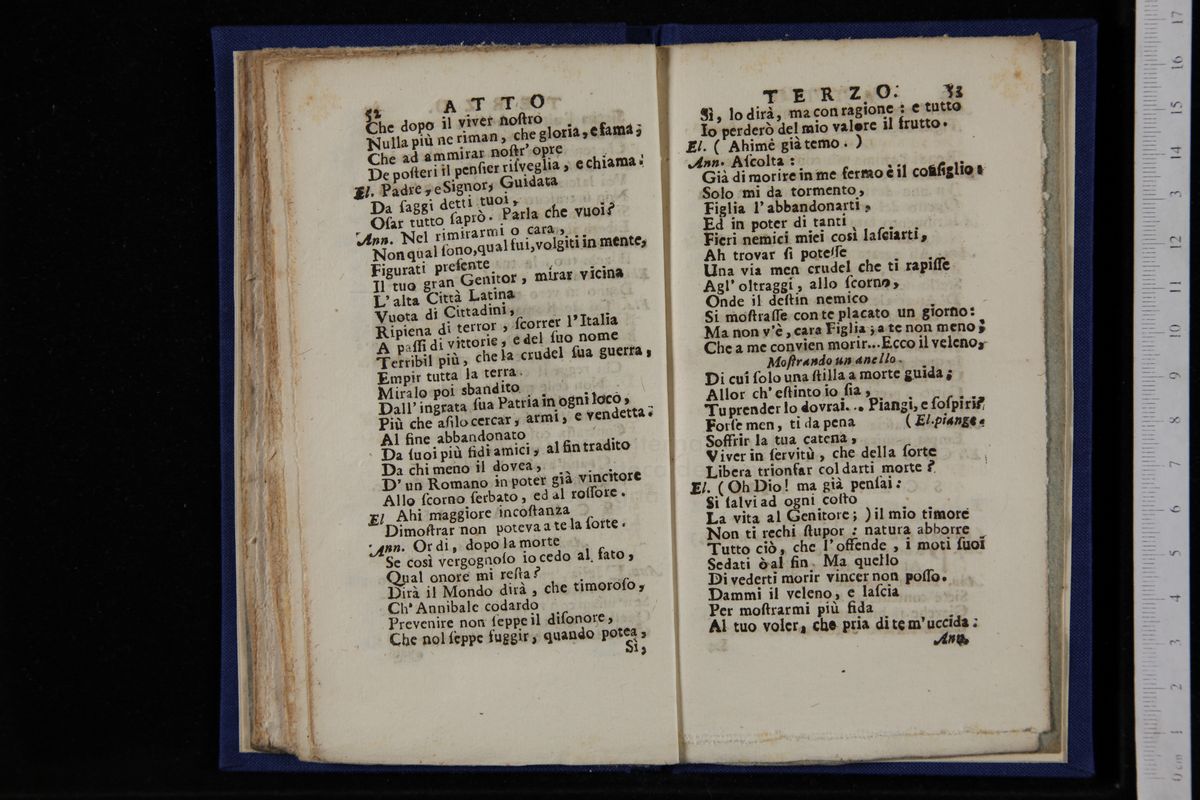 52 ATTO
Che dopo il viver noſtro
Nulla più ne riman, che gloria, e fama;
Che ad ammirar noſtr' opre
De poſteri il penſier riſveglia, e chiama.
El. Padre, e Signor, Guidata
Da ſaggi detti tuoi,
Oſar tutto ſaprò. Parla che vuoi?
Ann. Nel rimirarmi o cara,
Non qual ſono, qual fui, volgiti in mente,
Figurati preſente
Il tuo gran Genitor, mirar vicina
L'alta Città Latina
Vuota di Cittadini,
Ripiena di terror, ſcorrer l'Italia
A paſſi di vittorie, e del ſuo nome
Terribil più, che la crudel ſua guerra,
Empir tutta la terra.
Miralo poi sbandito
Dall' ingrata ſua Patria in ogni loco,
Più che aſilo cercar, armi, e vendetta:
Al fine abbandonato
Da ſuoi più fidi amici, al fin tradito
Da chi meno il dovea,
D'un Romano in poter già vincitore
Allo ſcorno ſerbato, ed al roſſore.
El Ahi maggiore incoſtanza
Dimoſtrar non poteva a te la ſorte.
Ann. Or di, dopo la morte
Se così vergognoſo io cedo al fato,
Qual onore mi reſta?
Dirà il Mondo dirà, che timoroſo,
Ch' Annibale codardo
Prevenire non ſeppe il diſonore,
Che nol ſeppe fuggir, quando potea,
Sì,
TERZO. 53
Sì, lo dirà, ma con ragione: e tutto
Io perderò del mio valore il frutto.
El. (Ahimè già temo.)
Ann. Aſcolta:
Già di morire in me fermo è il conſiglio:
Solo mi da tormento,
Figlia l'abbandonarti,
Ed in poter di tanti
Fieri nemici miei così laſciarti,
Ah trovar ſi poteſſe
Una via men crudel che ti rapiſſe
Agl' oltraggi, allo ſcorno,
Onde il deſtin nemico
Si moſtraſſe con te placato un giorno:
Ma non v'è, cara Figlia; a te non meno;
Che a me convien morir... Ecco il veleno,
Moſtrando un anello.
Di cui ſolo una ſtilla a morte guida;
Allor ch' eſtinto io ſia,
Tu prender lo dovrai... Piangi, e ſoſpiri?
Forſe men, ti da pena (El. piange.
Soffrir la tua catena,
Viver in ſervitù, che della ſorte
Libera trionfar col darti morte?
El. (Oh Dio! ma già penſai:
Si ſalvi ad ogni coſto
La vita al Genitore;) il mio timore
Non ti rechi ſtupor: natura abborre
Tutto ciò, che l'offende, i moti ſuoi
Sedati ò al fin. Ma quello
Di vederti morir vincer non poſſo.
Dammi il veleno, e laſcia
Per moſtrarmi più fida
Al tuo voler, che pria di te m'uccida.
Ann.